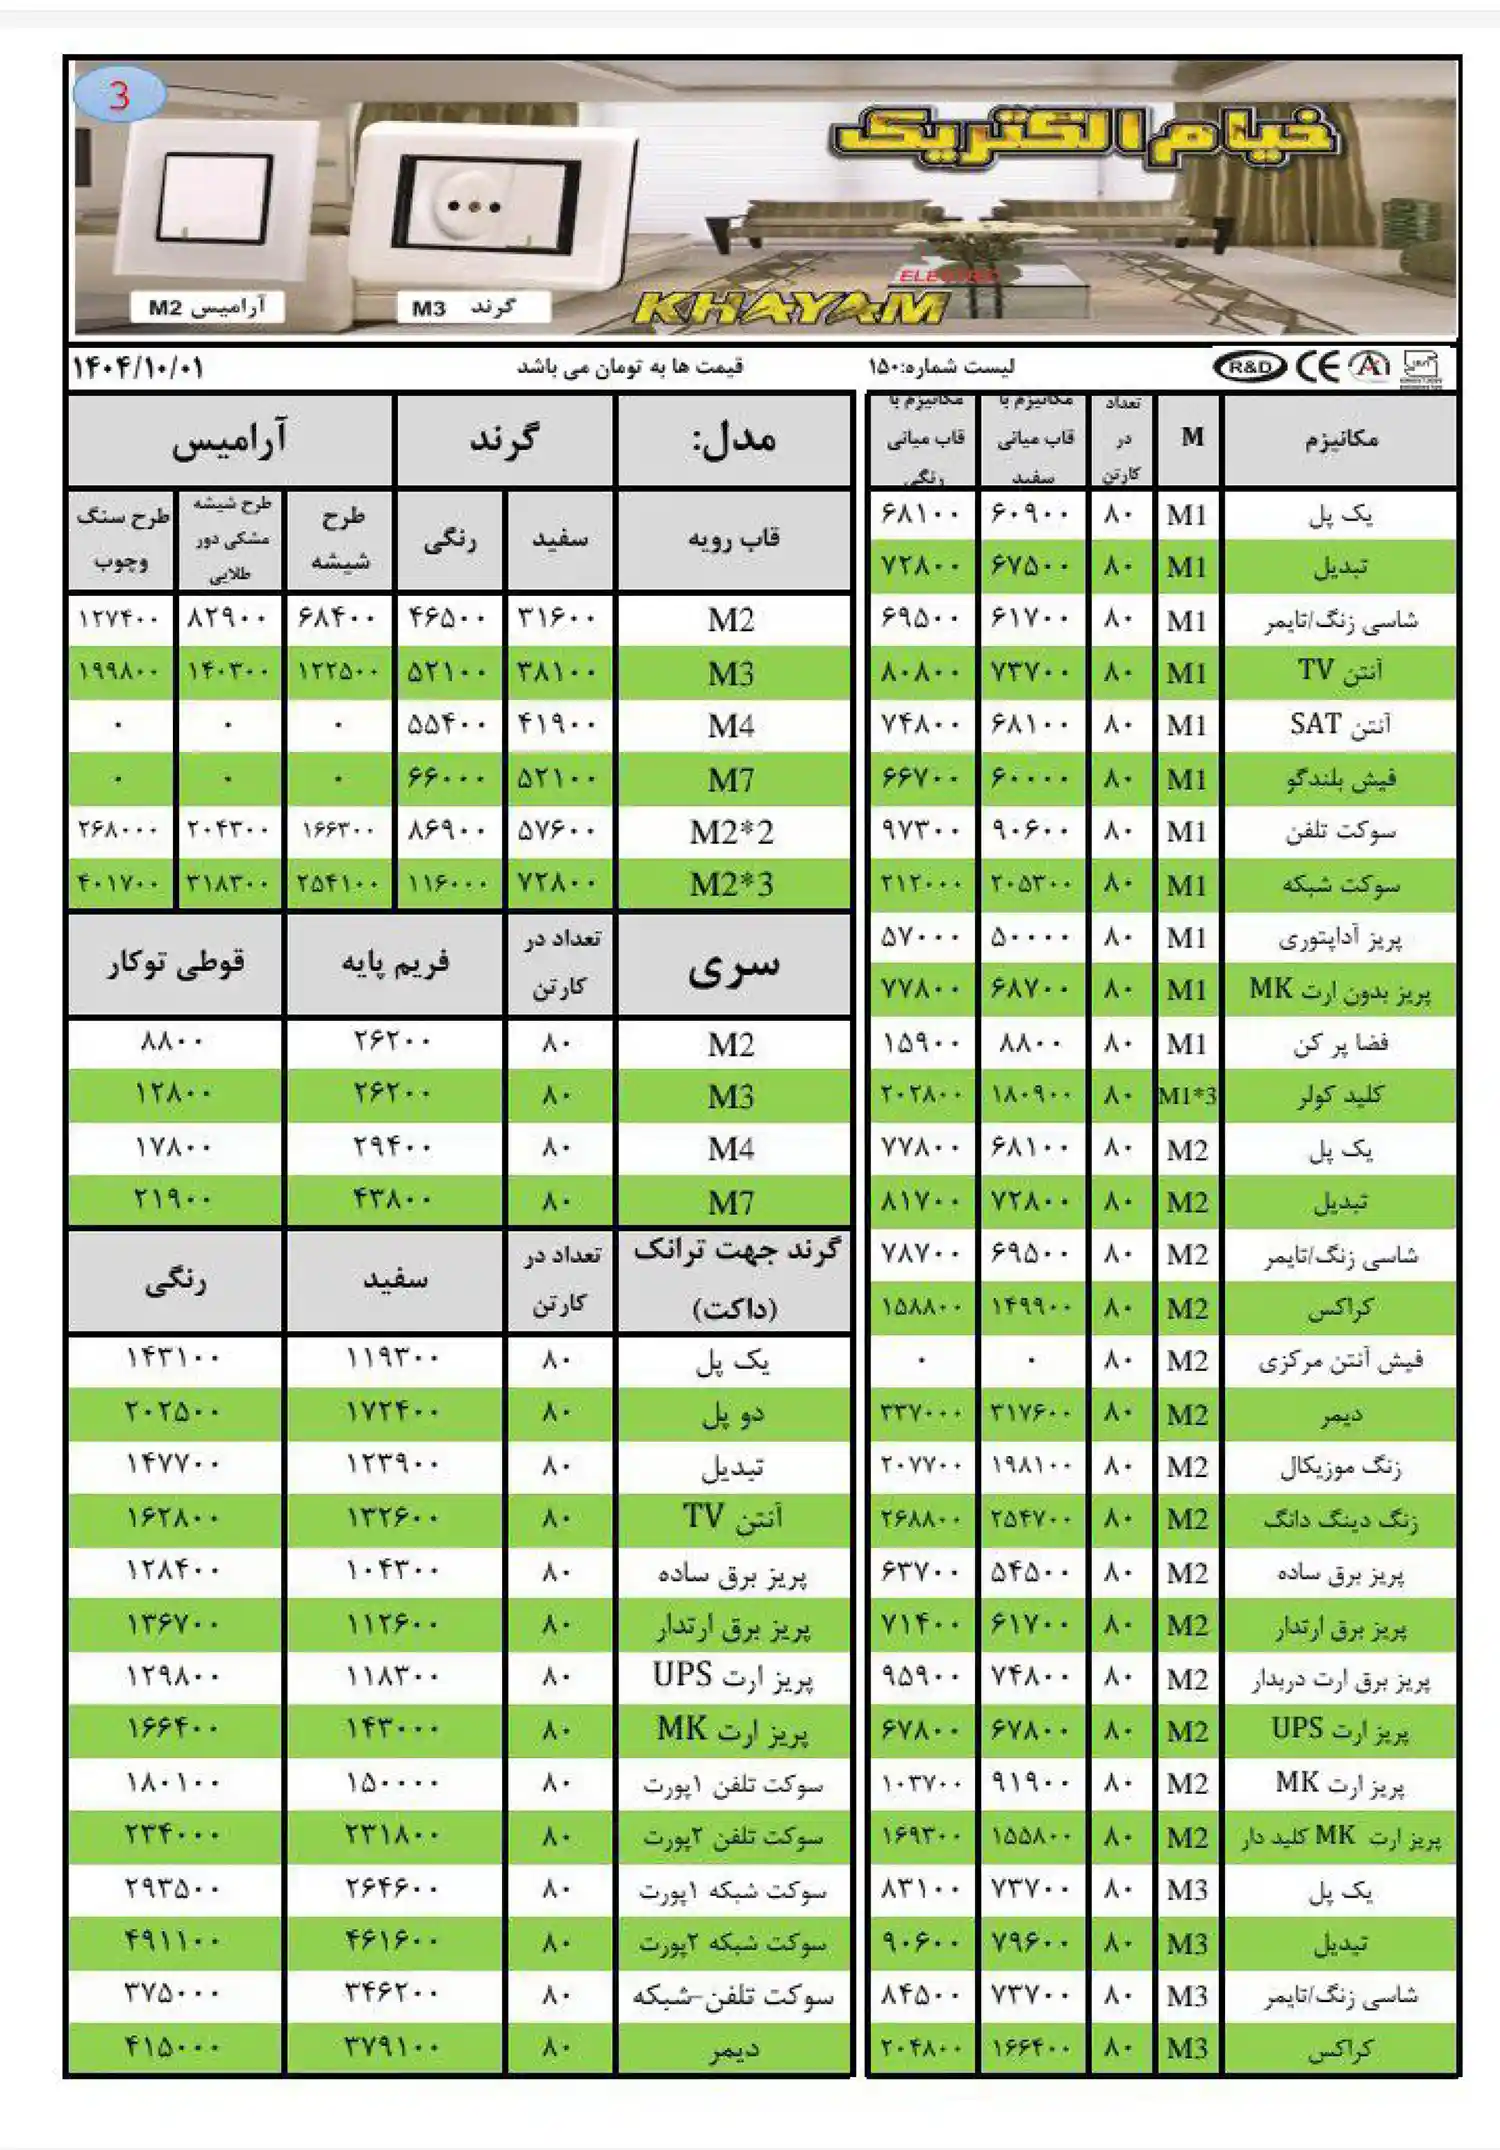 3
خیام الکتریک
ELECTREC
KHAYAM
گرند M3
آرامیس M2
R&D CE
لیست شماره:۱۵۰
قیمت ها به تومان می باشد
۱۴۰۴/۱۰/۰۱
مکانیزم | M | تعداد در کارتن | مکانیزم با قاب میانی سفید | مکانیزم با قاب میانی رنگی
یک پل M1 ۸۰ ۶۰۹۰۰ ۶۸۱۰۰
تبدیل M1 ۸۰ ۶۷۵۰۰ ۷۲۸۰۰
شاسی زنگ/تایمر M1 ۸۰ ۶۱۷۰۰ ۶۹۵۰۰
آنتن TV M1 ۸۰ ۷۳۷۰۰ ۸۰۸۰۰
آنتن SAT M1 ۸۰ ۶۸۱۰۰ ۷۴۸۰۰
فیش بلندگو M1 ۸۰ ۶۰۰۰۰ ۶۶۷۰۰
سوکت تلفن M1 ۸۰ ۹۰۶۰۰ ۹۷۳۰۰
سوکت شبکه M1 ۸۰ ۲۰۵۳۰۰ ۲۱۲۰۰۰
پریز آداپتوری M1 ۸۰ ۵۰۰۰۰ ۵۷۰۰۰
پریز بدون ارت MK M1 ۸۰ ۶۸۷۰۰ ۷۷۸۰۰
فضا پر کن M1 ۸۰ ۸۸۰۰ ۱۵۹۰۰
کلید کولر M1*3 ۸۰ ۱۸۰۹۰۰ ۲۰۲۸۰۰
یک پل M2 ۸۰ ۶۸۱۰۰ ۷۷۸۰۰
تبدیل M2 ۸۰ ۷۲۸۰۰ ۸۱۷۰۰
شاسی زنگ/تایمر M2 ۸۰ ۶۹۵۰۰ ۷۸۷۰۰
کراکس M2 ۸۰ ۱۴۹۹۰۰ ۱۵۸۸۰۰
فیش آنتن مرکزی M2 ۸۰ ۰ ۰
دیمر M2 ۸۰ ۳۱۷۶۰۰ ۳۳۷۰۰۰
زنگ موزیکال M2 ۸۰ ۱۹۸۱۰۰ ۲۰۷۷۰۰
زنگ دینگ دانگ M2 ۸۰ ۲۵۴۷۰۰ ۲۶۸۸۰۰
پریز برق ساده M2 ۸۰ ۵۴۵۰۰ ۶۳۷۰۰
پریز برق ارتدار M2 ۸۰ ۶۱۷۰۰ ۷۱۴۰۰
پریز برق ارت دربدار M2 ۸۰ ۷۴۸۰۰ ۹۵۹۰۰
پریز ارت UPS M2 ۸۰ ۶۷۸۰۰ ۶۷۸۰۰
پریز ارت MK M2 ۸۰ ۹۱۹۰۰ ۱۰۳۷۰۰
پریز ارت MK کلید دار M2 ۸۰ ۱۵۵۸۰۰ ۱۶۹۳۰۰
یک پل M3 ۸۰ ۷۳۷۰۰ ۸۳۱۰۰
تبدیل M3 ۸۰ ۷۹۶۰۰ ۹۰۶۰۰
شاسی زنگ/تایمر M3 ۸۰ ۷۳۷۰۰ ۸۴۵۰۰
کراکس M3 ۸۰ ۱۶۶۴۰۰ ۲۰۴۸۰۰
مدل: | گرند | آرامیس
قاب رویه | سفید | رنگی | طرح شیشه | طرح شیشه مشکی دور طلایی | طرح سنگ وچوب
M2 ۳۱۶۰۰ ۴۶۵۰۰ ۶۸۴۰۰ ۸۲۹۰۰ ۱۲۷۴۰۰
M3 ۳۸۱۰۰ ۵۲۱۰۰ ۱۲۲۵۰۰ ۱۴۰۳۰۰ ۱۹۹۸۰۰
M4 ۴۱۹۰۰ ۵۵۴۰۰ ۰ ۰ ۰
M7 ۵۲۱۰۰ ۶۶۰۰۰ ۰ ۰ ۰
M2*2 ۵۷۶۰۰ ۸۶۹۰۰ ۱۶۶۳۰۰ ۲۰۴۳۰۰ ۲۶۸۰۰۰
M2*3 ۷۲۸۰۰ ۱۱۶۰۰۰ ۲۵۴۱۰۰ ۳۱۸۳۰۰ ۴۰۱۷۰۰
سری | تعداد در کارتن | فریم پایه | قوطی توکار
M2 ۸۰ ۲۶۲۰۰ ۸۸۰۰
M3 ۸۰ ۲۶۲۰۰ ۱۲۸۰۰
M4 ۸۰ ۲۹۴۰۰ ۱۷۸۰۰
M7 ۸۰ ۴۳۸۰۰ ۲۱۹۰۰
گرند جهت ترانک (داکت) | تعداد در کارتن | سفید | رنگی
یک پل ۸۰ ۱۱۹۳۰۰ ۱۴۳۱۰۰
دو پل ۸۰ ۱۷۲۴۰۰ ۲۰۲۵۰۰
تبدیل ۸۰ ۱۲۳۹۰۰ ۱۴۷۷۰۰
آنتن TV ۸۰ ۱۳۲۶۰۰ ۱۶۲۸۰۰
پریز برق ساده ۸۰ ۱۰۴۳۰۰ ۱۲۸۴۰۰
پریز برق ارتدار ۸۰ ۱۱۲۶۰۰ ۱۳۶۷۰۰
پریز ارت UPS ۸۰ ۱۱۸۳۰۰ ۱۲۹۸۰۰
پریز ارت MK ۸۰ ۱۴۳۰۰۰ ۱۶۶۴۰۰
سوکت تلفن ۱پورت ۸۰ ۱۵۰۰۰۰ ۱۸۰۱۰۰
سوکت تلفن ۲پورت ۸۰ ۲۳۱۸۰۰ ۲۳۴۰۰۰
سوکت شبکه ۱پورت ۸۰ ۲۶۴۶۰۰ ۲۹۳۵۰۰
سوکت شبکه ۲پورت ۸۰ ۴۶۱۶۰۰ ۴۹۱۱۰۰
سوکت تلفن-شبکه ۸۰ ۳۴۶۲۰۰ ۳۷۵۰۰۰
دیمر ۸۰ ۳۷۹۱۰۰ ۴۱۵۰۰۰